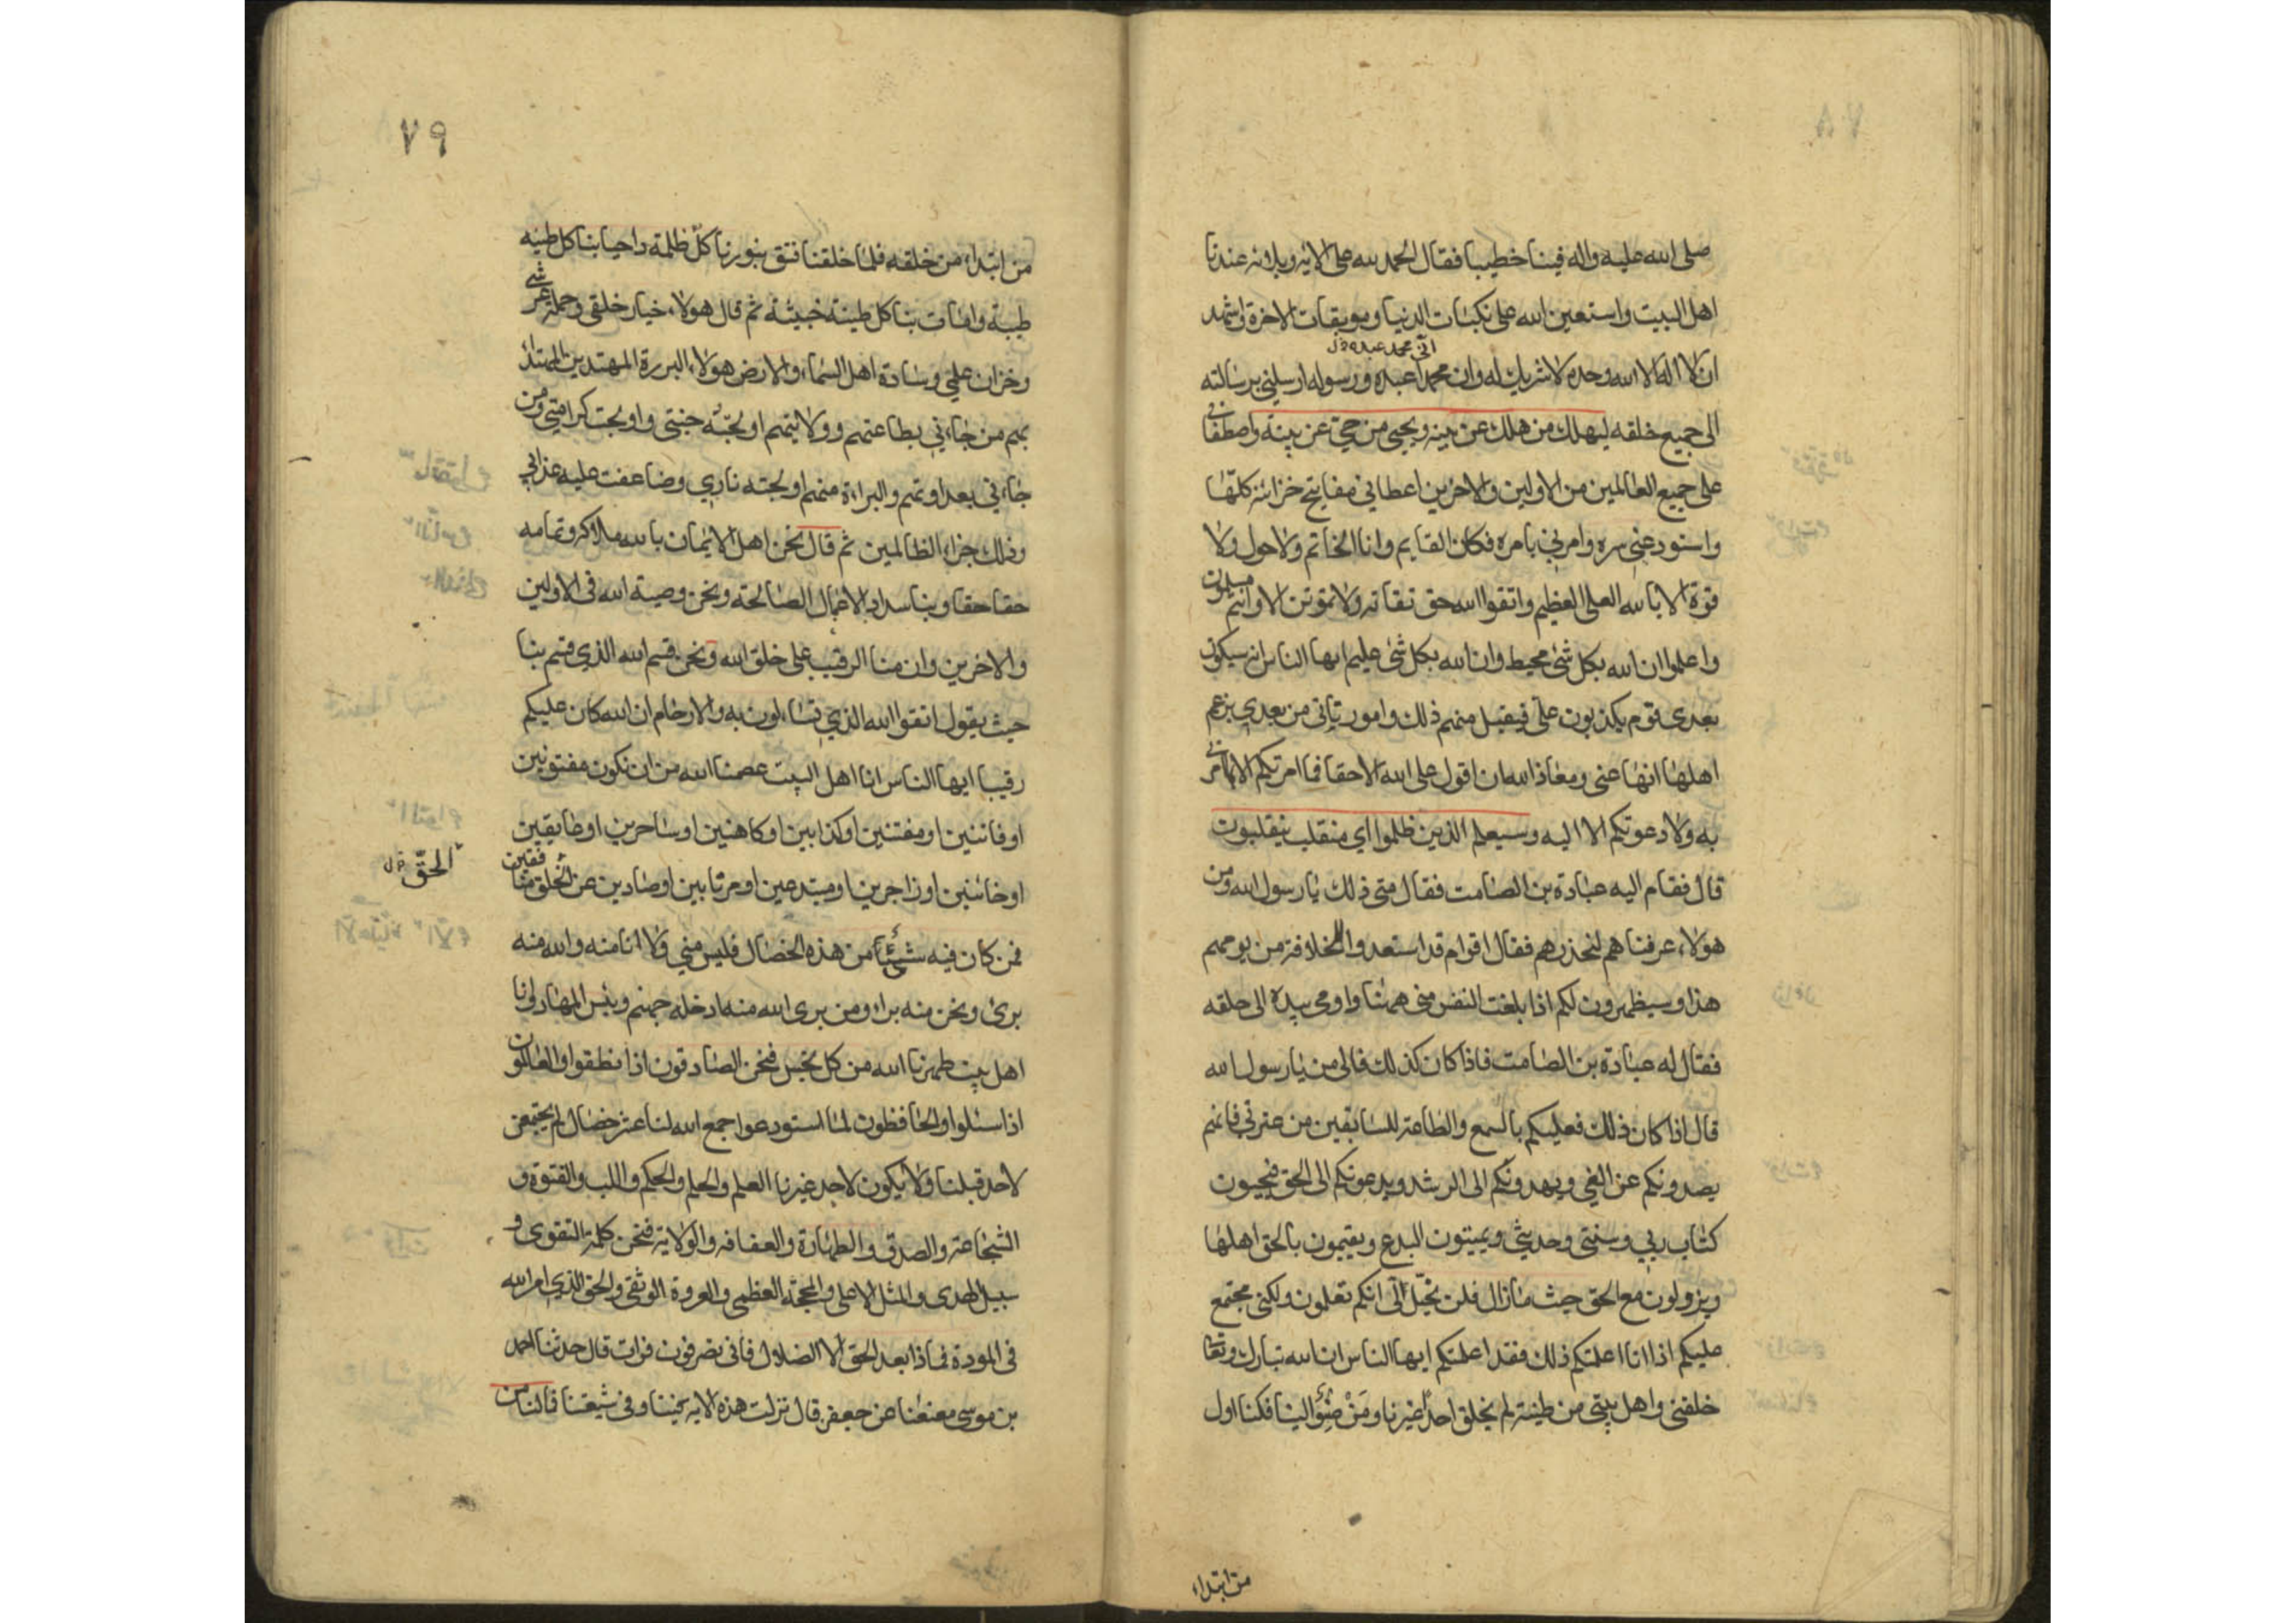 صلى الله عليه واله فينا خطيبا فقال الحمد لله على الايه وبلائه عندنا
اهل البيت واستعين الله على نكبات الدنيا وموبقات الاخرة واشهد
انى محمد عبده خ ل
ان لا اله الا الله وحده لا شريك له وان محمدا عبده ورسوله ارسلني برسالته
الى جميع خلقه ليهلك من هلك عن بينه ويحيى من حي عن بينة واصطفاني
على جميع العالمين من الاولين والاخرين اعطاني مفاتيح خزائنه كلها
واستودعني سره وامرني بامره فكان القايم وانا الخاتم ولا حول ولا
قوة الا بالله العلى العظيم واتقوا الله حق تقاته ولا تموتن الا وانتم مسلمون
واعلموا ان الله بكل شئ محيط وان الله بكل شئ عليم ايها الناس انه سيكون
بعدى قوم يكذبون على فيقبل منهم ذلك وامور تاتى من بعدي يزعم
اهلها انها عنى ومعاذ الله ان اقول على الله الا حقا فما امرتكم الا بما امرني
به ولا دعوتكم الا اليه وسيعلم الذين ظلموا اي منقلب ينقلبون
قال فقام اليه عبادة بن الصامت فقال متى ذلك يا رسول الله ومن
هولاء عرفناهم لنحذرهم فقال اقوام قد استعدوا للخلافة من يومهم
هذا وسيظهرون لكم اذا بلغت النفس منى ههنا واومى بيده الى حلقه
فقال له عبادة بن الصامت فاذا كان كذلك فالى من يا رسول الله
قال اذا كان ذلك فعليكم بالسمع والطاعة للسابقين من عترتي فانهم
يصدونكم عن الغي ويهدونكم الى الرشد ويدعونكم الى الحق فيحيون
كتاب ربي وسنتى وحديثي ويميتون البدع ويقيمون بالحق اهلها
ويزولون مع الحق حيث ما زال فلن يخيل الى انكم تعلمون ولكنى محتج
عليكم اذا انا اعلمتكم ذلك فقد اعلمتكم ايها الناس ان الله تبارك وتعالى
خلقنى واهل بيتى من طينة لم يخلق احدا غيرنا ومن ضوى الينا فكنا اول
من ابتداء
٧٩
من ابتداء من خلقه فلما خلقنا فتق بنورنا كل ظلمة واحيا بنا كل طينه
طيبة وامات بنا كل طينة خبيثة ثم قال هولاء خيار خلقى وحملة عرشي
وخزان علمي وسادة اهل السماء والارض هولاء البررة المهتدين المهتدا
بهم من جاءني بطاعتهم وولايتهم اولجته جنتى واولجت كرامتي ومن
جاءني بعداوتهم والبراءة منهم اولجته ناري وضاعفت عليه عذابي
وذلك جزاء الظالمين ثم قال نحن اهل الايمان بالله ملاكه وتمامه
حقا حقا وبنا سداد الاعمال الصالحة ونحن وصية الله فى الاولين
والاخرين وان منا الرقيب على خلق الله ونحن قسم الله الذي قسم بنا
حيث يقول اتقوا الله الذي تساءلون به والارحام ان الله كان عليكم
رقيبا ايها الناس انا اهل البيت عصمنا الله من ان نكون مفتونين
او فاتنين او مفتنين او كذابين او كاهنين او ساحرين او عايقين
او خائنين او زاجرين او مبتدعين او مرتابين او صادين عن الخلق منافقين
الحق خ ل
فمن كان فيه شئ من هذه الخصال فليس مني ولا انا منه والله منه
برئ ونحن منه براء ومن برى الله منه ادخله جهنم وبئس المهاد وانا
اهل بيت طهرنا الله من كل نجس فنحن الصادقون اذا نطقوا والعالمون
اذا سئلوا والحافظون لما استودعوا جمع الله لنا عشر خصال لم يجتمعن
لاحد قبلنا ولا يكون لاحد غيرنا العلم والحلم والحكم واللب والفتوة و
الشجاعة والصدق والطهارة والعفافه والولاية فنحن كلمة التقوى و
سبيل الهدى والمثل الاعلى والحجة العظمى والعروة الوثقى والحق الذي امر الله
فى المودة فماذا بعد الحق الا الضلال فانى تصرفون فرات قال حدثنا احمد
بن موسى معنعنا عن جعفر قال نزلت هذه الايه فينا وفى شيعتنا فما لنا من